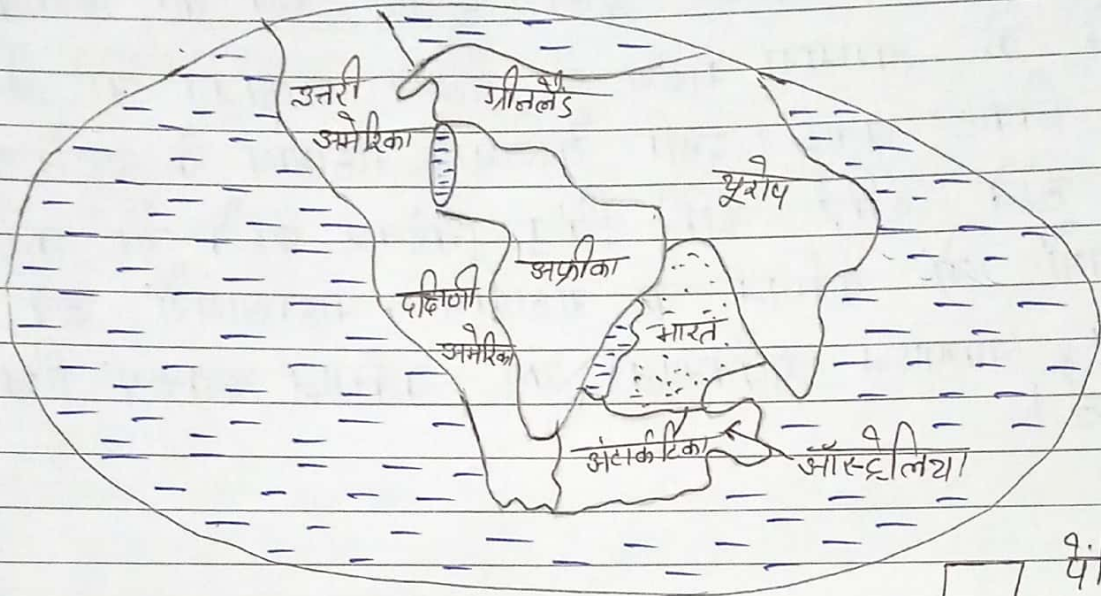 उत्तरी
अमेरिका
ग्रीनलैंड
यूरोप
अफ्रीका
दक्षिणी
अमेरिका
भारत
अंटार्कटिका
ऑस्ट्रेलिया